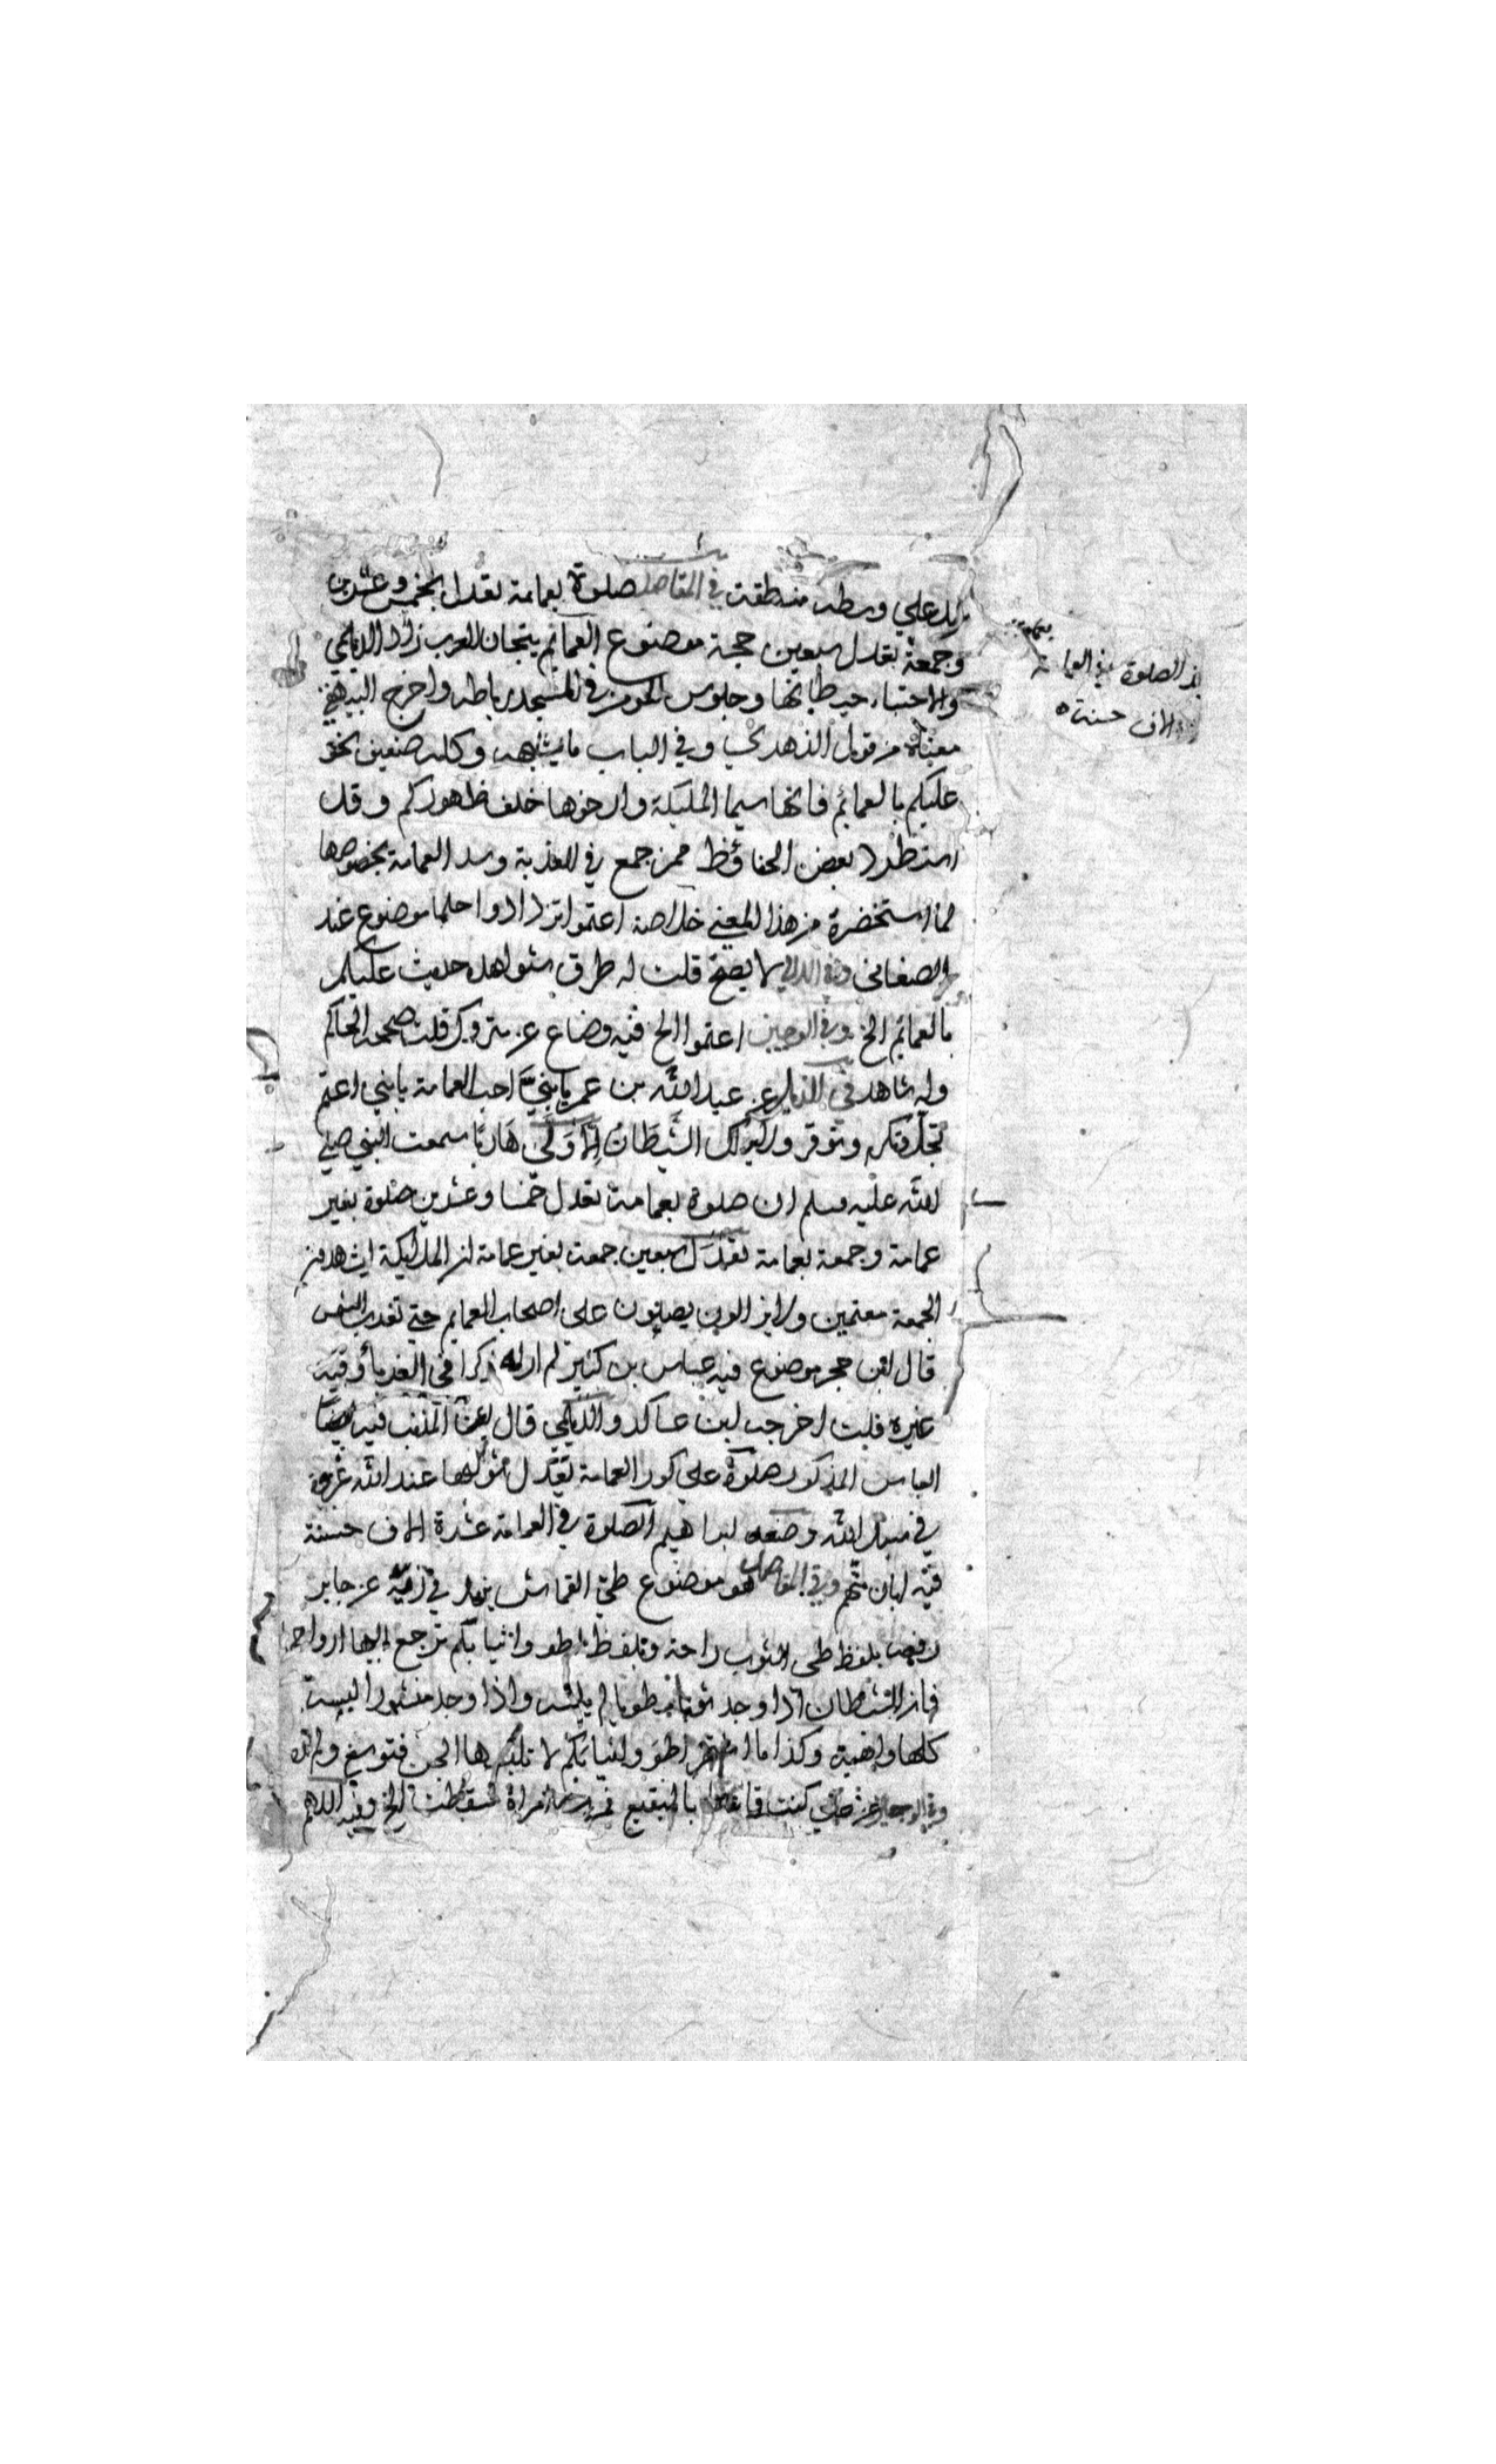 يد علي وسطه منطقة في المقاصد صلوة بعمامة تعدل بخمس وعشرين
وجمعة تعدل سبعين حجة موضوع العمائم تيجان العرب زاد الديلمي
والاحتباء حيطانها وجلوس المومن في المسجد رباطه واخرج البيهقي
معناه من قول الزهري وفي الباب ما يشبهه وكله ضعيف نحو
عليكم بالعمائم فانها سيما المليكة وارخوها خلف ظهوركم وقد
استطرد بعض الحفاظ ممن جمع في العذبة وسدل العمامة بخصوصها
لما استحضرة من هذا المعني خلاصة اعتموا تزدادوا حلما موضوع عند
الصغاني وفي اللالي لا يصح قلت له طرق شواهد حديث عليكم
بالعمائم الخ وفي الوجيز اعتموا الخ فيه وضاع عن متروك قلت صححه الحاكم
وله شاهد في الذيل عن عبد الله بن عمر يا بني احب العمامة يا بني اعتم
تجل وتكرم وتوقر ولا يراك الشيطان الا ولي هاربا سمعت النبي صلي
الله عليه وسلم ان صلوة بعمامة تعدل خمسا وعشرين صلوة بغير
عمامة وجمعة بعمامة تعدل سبعين جمعة بغير عمامة ان المليكة ليشهدون
الجمعة معتمين ولا يزالون يصلون على اصحاب العمايم حتي تغرب الشمس
قال ابن حجر موضوع فيه عباس بن كثير لم ار له ذكرا في الغرباء وفيه
غيره قلت اخرجه ابن عساكر والديلمي قال
العباس المذكور صلوة علي كور العمامة تعدل ثوابها عند الله غزوة
في سبيل الله وضعه ابراهيم الصلوة في العمامة عشرة الاف حسنة
فيه ابان متهم وفي المقاصد هو موضوع طي القماش يزيد في زيه عن جابر
رفعه بلفظ طي الثوب راحة وبلفظ اطووا ثيابكم ترجع اليها ارواحها
فان الشيطان اذا وجد ثوبا مطويا لم يلبسه واذا وجد منشورا لبسه
كلها واهية وكذا ما اشتهر اطووا ثيابكم لا تلبسها الجن فتوسخ
وفي الوجيز عن علي كنت قاعدا بالبقيع فمرت امراة فسقطت الخ وفيه اللهم
الصلوة في العمامة
الاف حسنة